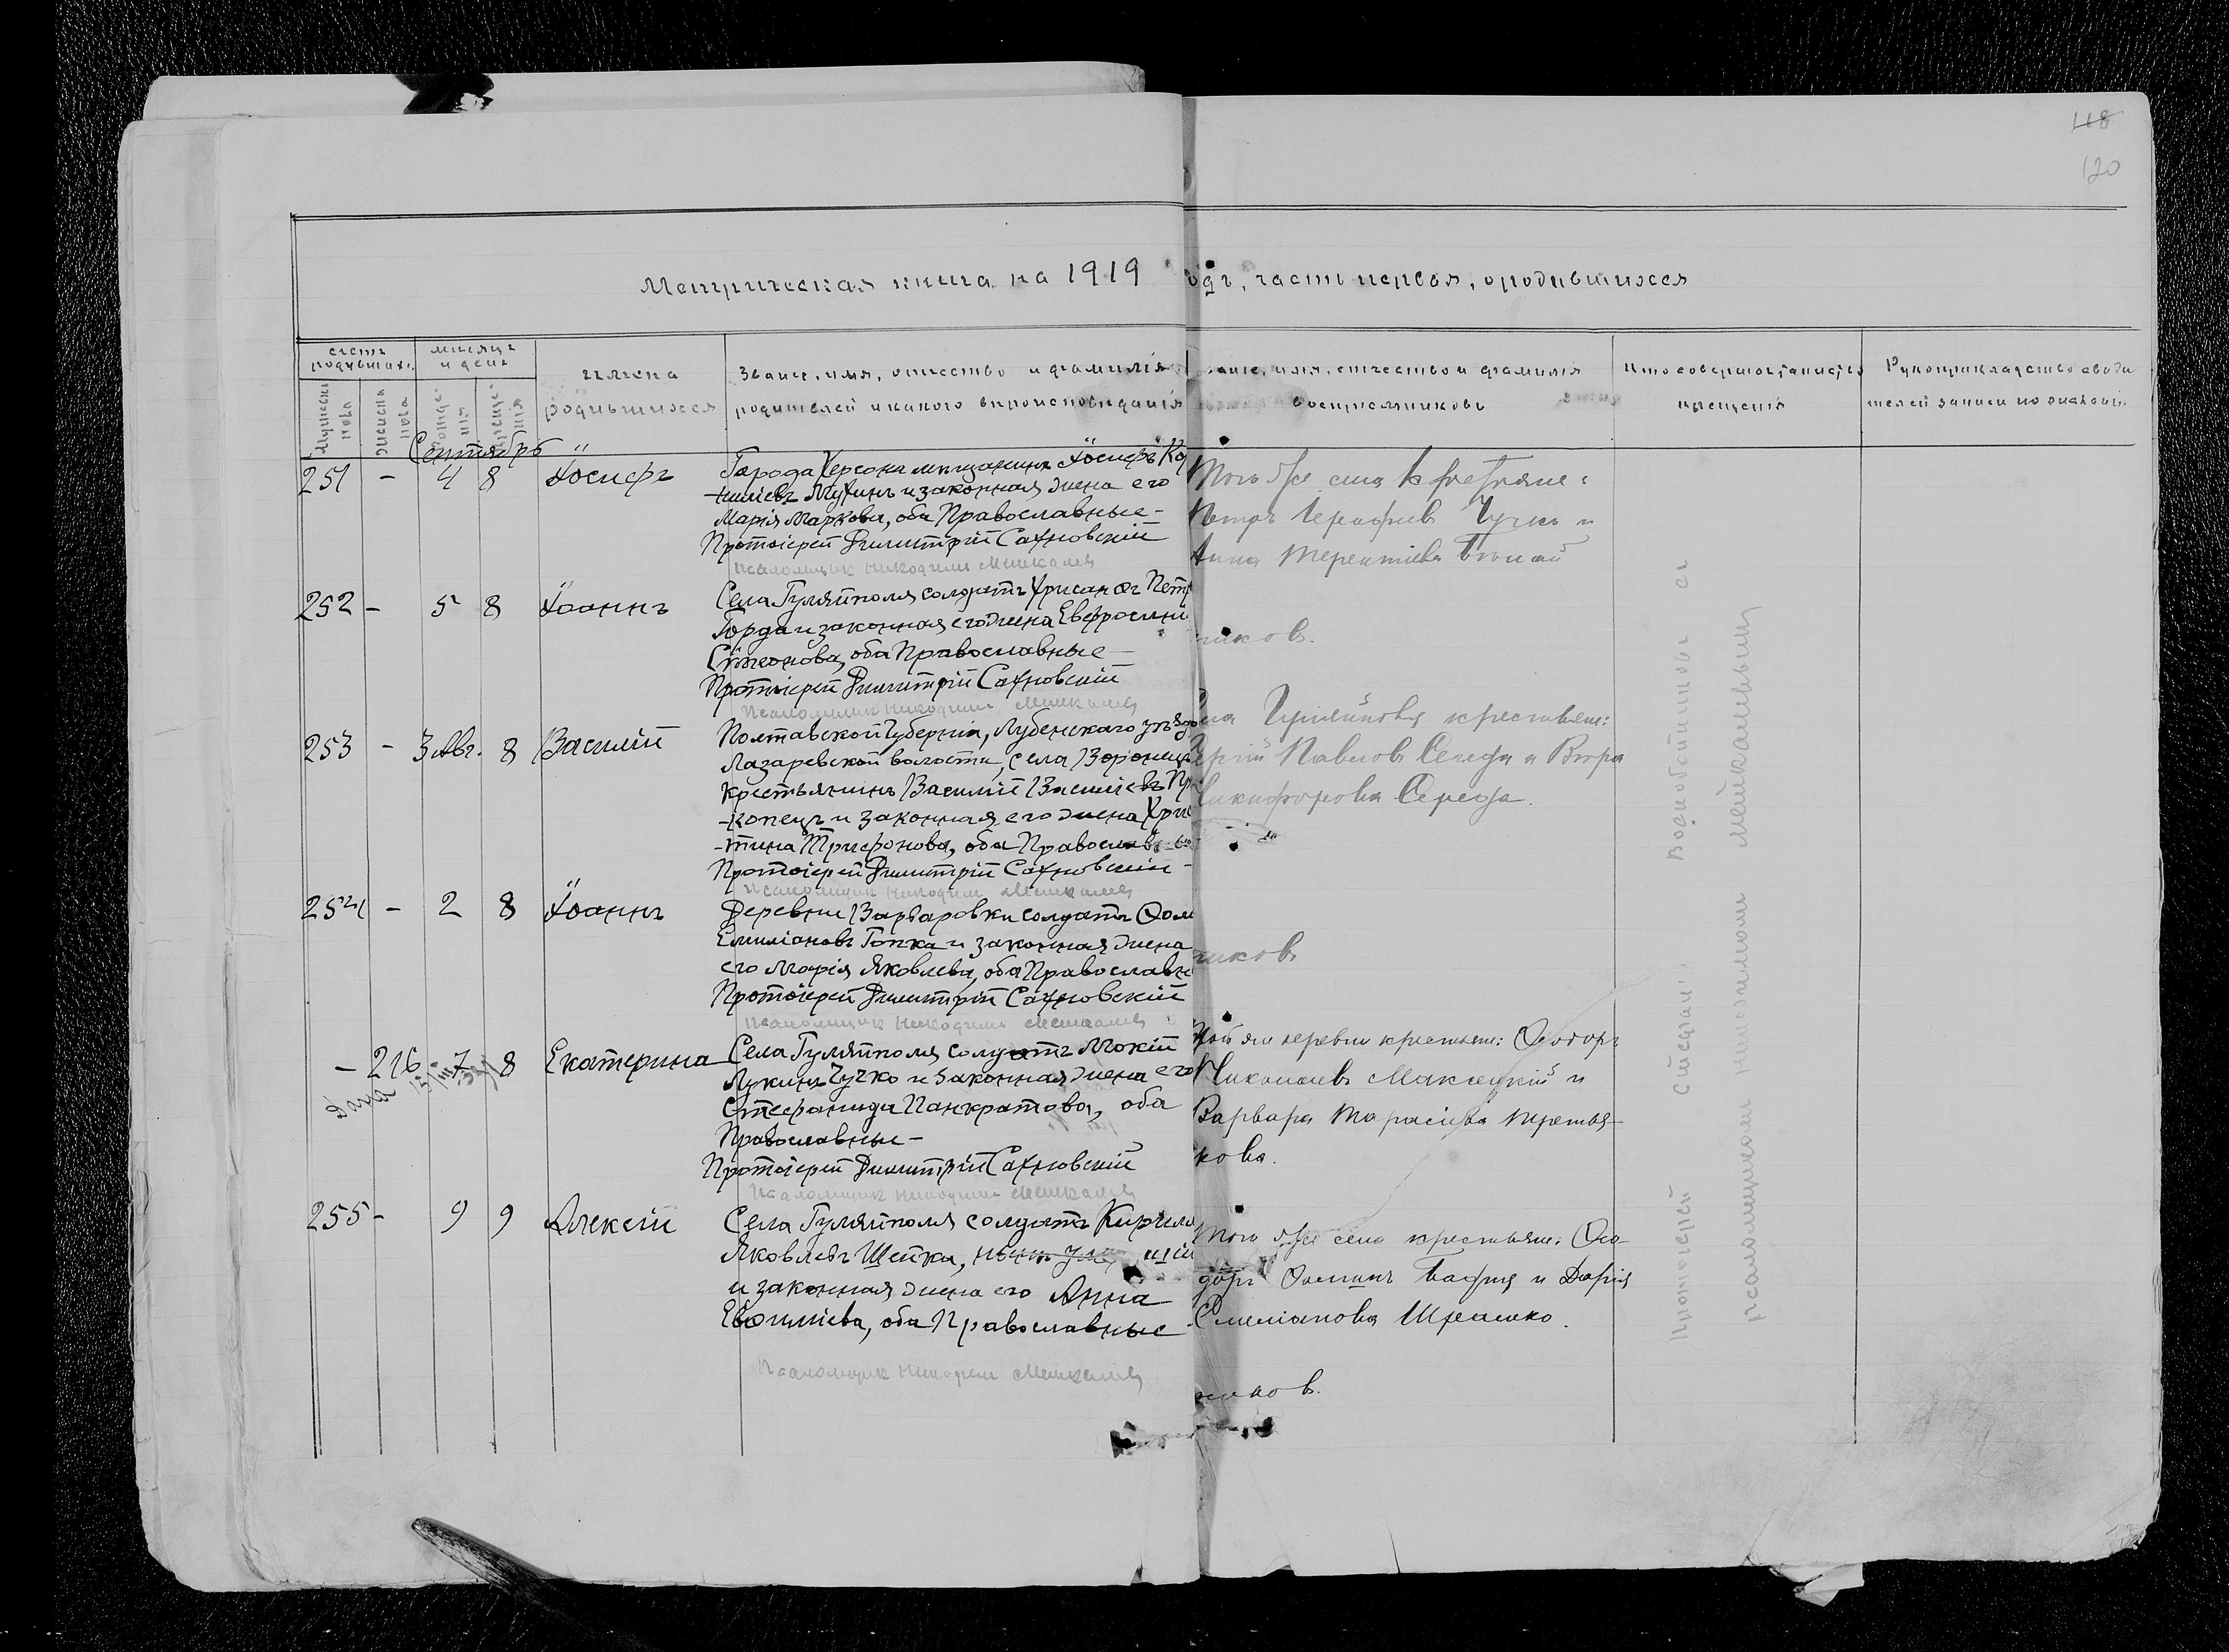 118
120
Метрическая книга на 1919 годъ, часть первая, о родившихся
счетъ родившихся
мѣсяцъ и день
мужеска пола
женска пола
рожденія
крещенія
имена родившихся
Званіе, имя, отчество и фамилія
родителей и какого вѣроисповѣданія
званіе, имя, отчество и фамилія
воспріемниковъ
Кто совершалъ таинство
крещенія
Рукоприкладство свидѣ
телей записи по желанію
Сентябрь
251 - 4 8 Іосифъ
Города Херсона мѣщанинъ Іосифъ Кор
-ниліевъ Мухинъ и законная жена его
Марія Маркова, оба Православные -
Протоіерей Димитрій Сахновскій
Псаломщик Никодим Мешкалев
Того же села крестьяне:
Петръ Чучко и
Анна Терентіева
252 - 5 8 Іоаннъ
Села Гуляйполя солдатъ Хрисанѳъ Петр
Горда и законная его жена Евфросинія
Сѵмеонова, оба Православные -
Протоіерей Димитрій Сахновскій
Псаломщик Никодим Мешкалев
ников.
253 - 3 Авг. 8 Василій
Полтавской Губерніи, Лубенскаго уѣзда
Лазаревской волости, села
крестьянинъ Василій Василіевъ Про
-копецъ и законная его жена Хрис
-тина Трифонова, оба Православные
Протоіерей Димитрій Сахновскій -
Псаломщик Никодим Мешкалев
Села Гуляйполя крестьяне:
Сергій Павлов Середа и Вѣра
Никифорова Середа.
254 - 2 8 Іоаннъ
Деревни Варваровки солдатъ Ѳома
Емиліановъ Гопка и законная жена
его Марія Яковлева, оба Православн
Протоіерей Димитрій Сахновскій
Псаломщик Никодим Мешкалев
ников
- 216 7 8 Екатерина
Села Гуляйполя солдатъ Мокій
Лукинъ Чучко и законная жена его
Стефанида Панкратова, оба
Православные -
Протоіерей Димитрій Сахновскій
Псаломщик Никодим Мешкалев
Той же деревни крестьяне: Ѳеодоръ
Николаевъ и
Варвара Тарасіева Третья-
кова.
255 - 9 9 Алексій
Села Гуляйполя солдатъ Кирилл
Яковлевъ Шейка,
и законная жена его Анна
Евѳиміева, оба Православные
Псаломщик Никодим Мешкалев
Того же села крестьяне: Ѳео-
доръ Ѳоминъ и Дарія
Емеліанова
ников.
Протоіерей Стефанъ Войнобойников съ
псаломщиком Никодимом Мешкалевым